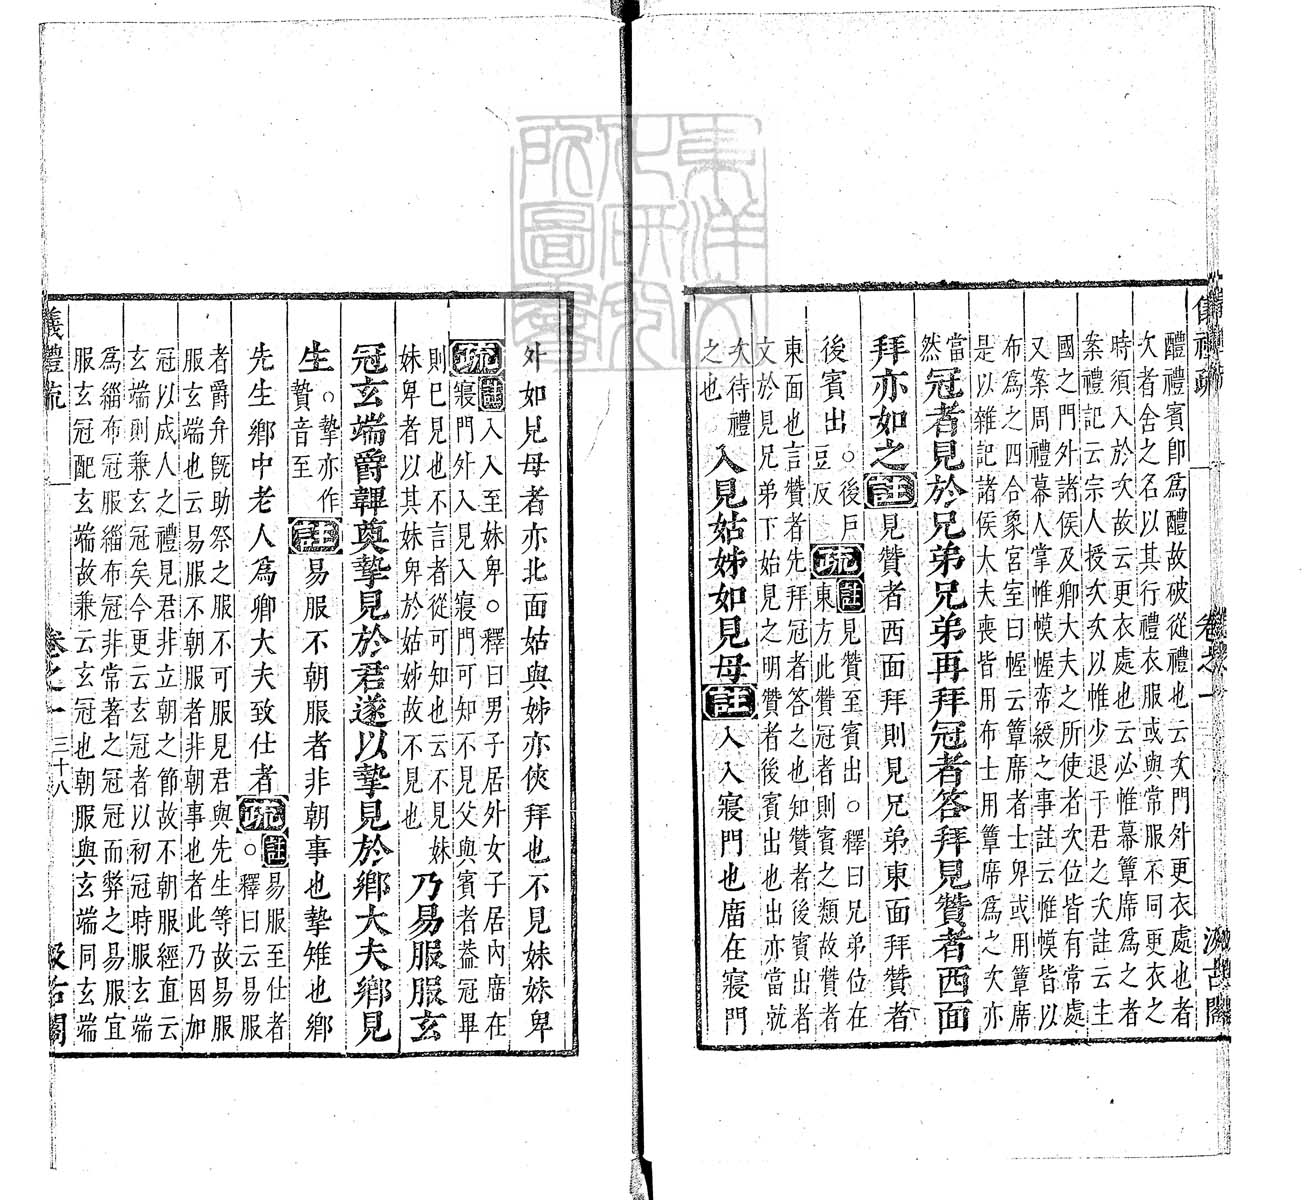 醴禮賓卽爲醴故破從禮也云次門外更衣處也者
次者舍之名以其行禮衣服或與常服不同更衣之
時須入於次故云更衣處也云必帷幕簟席爲之者
案禮記云宗人授次次以帷少退于君之次註云主
國之門外諸侯及卿大夫之所使者次位皆有常處
又案周禮幕人掌帷幙幄帟綬之事註云帷幙皆以
布爲之四合象宮室曰幄云簟席者士卑或用簟席
是以雜記諸侯大夫喪皆用布士用簟席爲之次亦
當
然
冠者見於兄弟兄弟再拜冠者答拜見贊者西面
拜亦如之註見贊者西面拜則見兄弟東面拜贊者
後賓出
○後戶
豆反
疏註見贊至賓出○釋曰兄弟位在
東方此贊冠者則賓之類故贊者
東面也言贊者先拜冠者答之也知贊者後賓出者
文於見兄弟下始見之明贊者後賓出也出亦當就
次待禮
之也
入見姑姊如見母註入入寢門也廟在寢門
外如見母者亦北面姑與姊亦俠拜也不見妹妹卑
疏註入入至妹卑○釋曰男子居外女子居內廟在
寢門外入見入寢門可知不見父與賓者蓋冠畢
則已見也不言者從可知也云不見妹
妹卑者以其妹卑於姑姊故不見也
乃易服服玄
冠玄端爵韠奠摯見於君遂以摯見於鄉大夫鄉見
生
○摯亦作
贄音至
註易服不朝服者非朝事也摯雉也鄉
先生鄉中老人爲卿大夫致仕者疏註易服至仕者
○釋曰云易服
者爵弁旣助祭之服不可服見君與先生等故易服
服玄端也云易服不朝服者非朝事也者此乃因加
冠以成人之禮見君非立朝之節故不朝服經直云
玄端則兼玄冠矣今更云玄冠者以初冠時服玄端
爲緇布冠服緇布冠非常著之冠冠而弊之易服宜
服玄冠配玄端故兼云玄冠也朝服與玄端同玄端
儀禮疏
卷之一
三十八
汲古閣